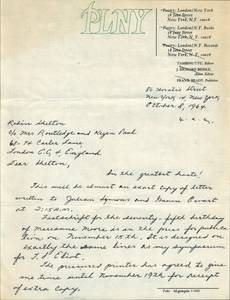 PLNY
Poetry: London/New York
New York, N.Y. 10014
Poetry: London/N.Y. Books
New York, N.Y. 10014
Poetry: London/N.Y. Records
New York, N.Y. 10014
TAMBIMUTTU, Editor
Editor
FRANK BRADY, Publisher
Horatio Street
New York 14 New York
October 8, 1964
4. a.m.
Robin Skelton
c/o Mrs Routledge and Kegan Paul
68-74 Carter Lane
London E.C. 4 England
Dear Skelton,
In the greatest haste!
This will be almost an exact copy of letter
written to Julian Symons and Nancy Cunard
at 2:15 A.M.
Festschrift for the seventy-fifth birthday
of Marianne Moore is on the price for publica-
tion on November 15th. It is designed on
exactly the same lines as my symposium
for T.S. Eliot.
The pressured printer has agreed to give
me time until November 19th for receipt
of extra copy.